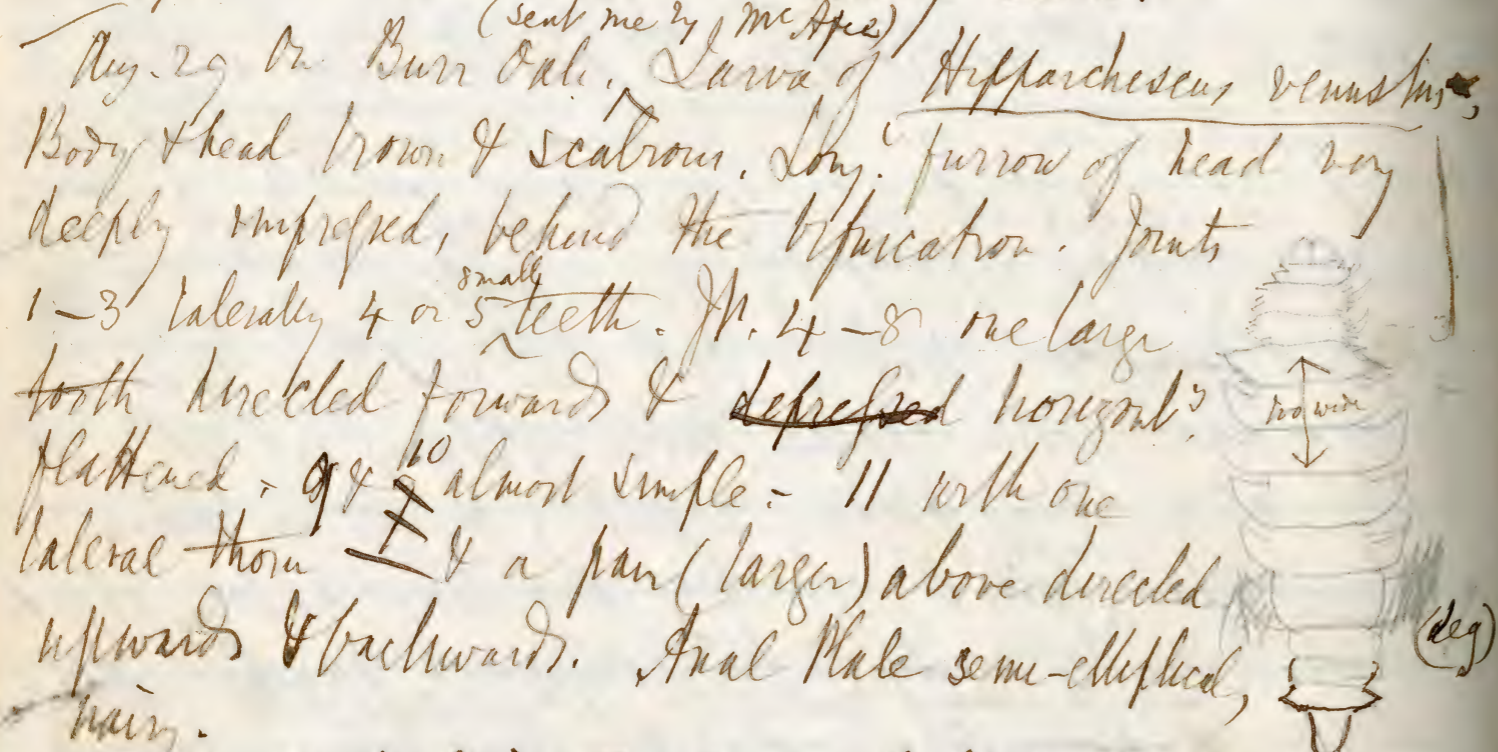 (sent me by McAfee)
Aug. 29 On Burr Oak. Larva of Hipparchiscus venustus,
Body & head brown & scabrous. Long.l furrow of head very
deeply impressed, behind the bifurcation. Joints
1-3 laterally 4 or 5 small teeth. Jts. 4-8 one large
tooth directed forwards & depressed horizont.y
flattened. 9 & 10 almost simple. 11 with one
lateral thorn & a pair (larger) above directed
upwards & backwards. Anal Plate semi-elliptical,
hairy.
too wide
(deg)